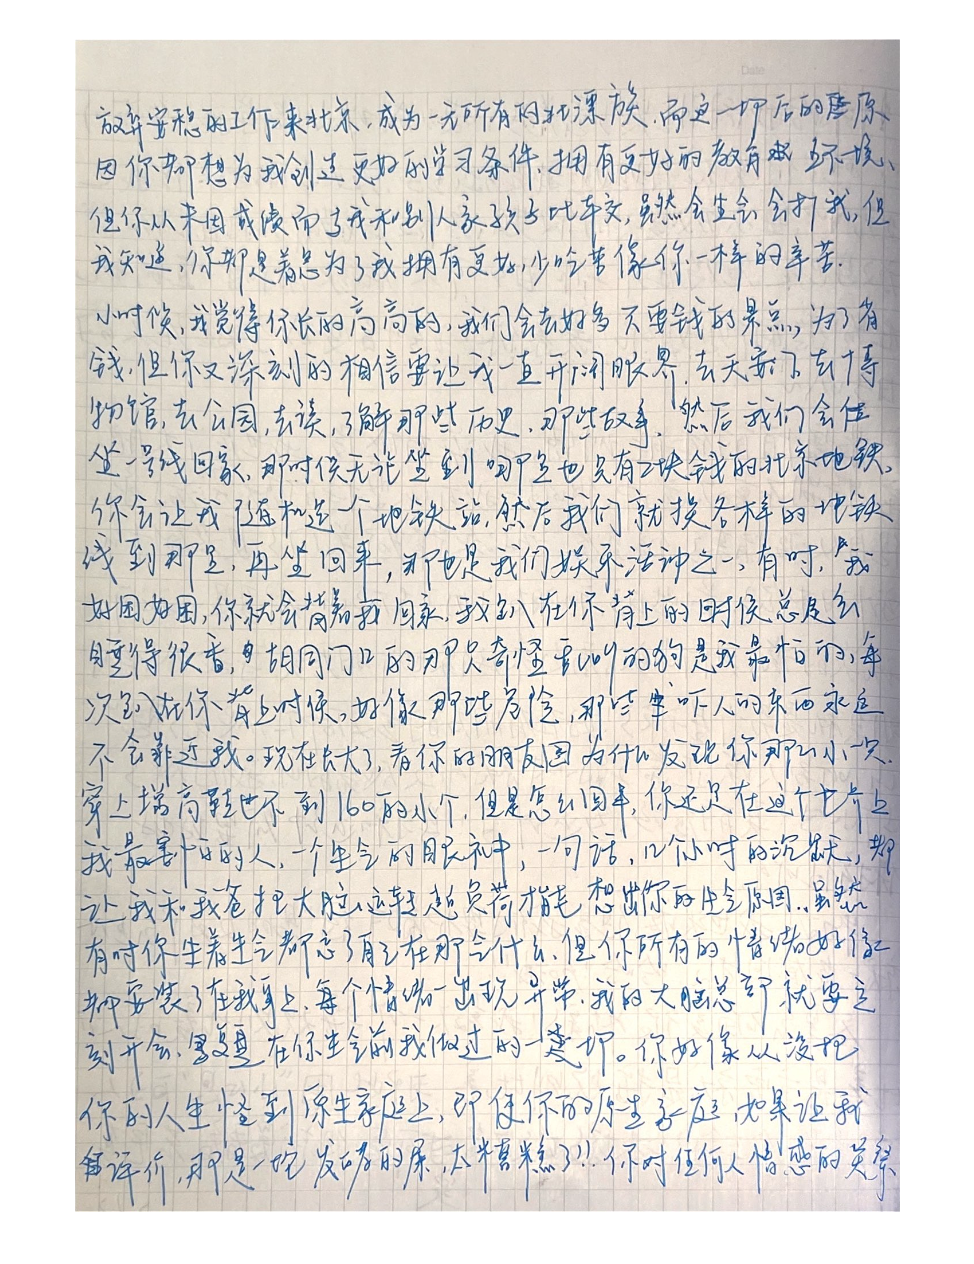 Date
放弃安稳的工作来北京,成为一无所有的北漂族,而这一切后的原
因你都想为我创造更好的学习条件,拥有更好的教育环境、
但你从来因成绩而与我和别人家孩子比较,虽然会生会会打我,但
我知道,你都是着急为了我拥有更好,少吃苦像你一样的辛苦.
小时候,我觉得你长的高高的,我们会去好多不要钱的景点,为了省
钱,但你又深刻的相信要让我一直开阔眼界,去天安门去博
物馆,去公园,去读,了解那些历史,那些故事,然后我们会
坐一号线回家,那时候无论坐到哪里也只有2块钱的北京地铁,
你会让我随机选一个地铁站,然后我们就换各样的地铁
线到那里,再坐回来,那也是我们娱乐活动之一,有时,我
好困好困,你就会背着我回家,我趴在你背上的时候总是会
睡得很香,胡同门口的那只奇怪乱叫的狗是我最怕的,每
次趴在你背上时候,好像那些危险,那些吓人的东西永远
不会靠近我。现在长大了,看你的朋友圈为什么发现你那么小一只.
穿上增高鞋也不到160的小个,但是怎么回事,你还是在这个世界上
我最害怕的人,一个生命的眼神中,一句话,几个小时的沉默,都
让我和我爸把大脑运转超负荷才能想出你的生会原因..虽然
有时你生着生会都忘了自己在那会什么,但你所有的情绪好像
都安装了在我身上,每个情绪一出现异常,我的大脑总部就要立
刻开会,复盘在你生会前我做过的一切。你好像从没把
你的人生怪到原生家庭上,即使你的原生家庭,如果让我
评价,那是一坨发的屎,太糟糕了!!你对任何人情感的关系